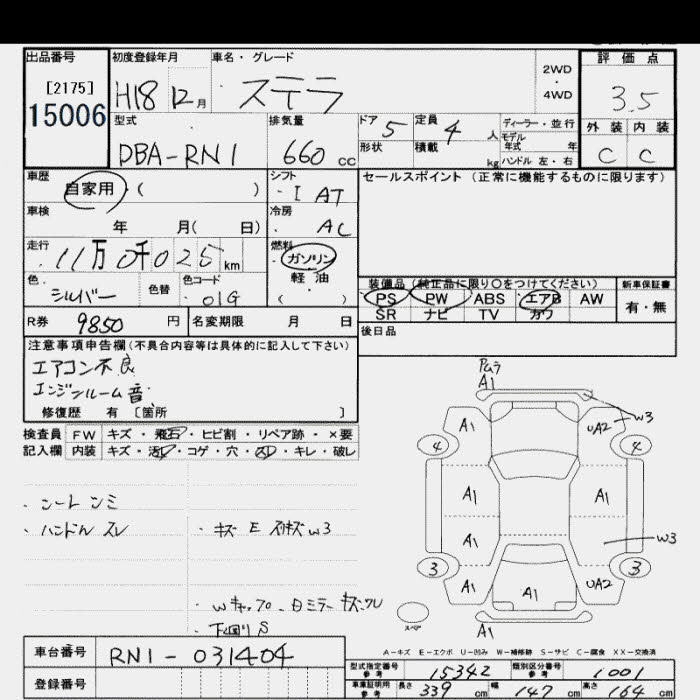 出品番号
[2175]
15006
初度登録年月
H18 12月
車名・グレード
ステラ
2WD
・
4WD
評価点
3.5
外装 内装
C C
型式
DBA-RN1
排気量
660 cc
ドア 5
定員 4 人
ディーラー・並行
モデル年式 年
形状
積載 kg
ハンドル 左・右
車歴
自家用 ( )
シフト
・I AT
セールスポイント (正常に機能するものに限ります)
車検
年 月( 日)
冷房
・ AC
走行
11万0千025 km
燃料
ガソリン
軽油
( )
色
シルバー
色替
色コード
・01G
装備品 (純正品に限り○をつけてください)
PS PW ABS エアB AW
SR ナビ TV カワ
新車保証書
有・無
R券 9850 円
名変期限 月 日
後日品
注意事項申告欄(不具合内容等は具体的に記入して下さい)
エアコン不良
エンジンルーム音
修復歴 有 [箇所 ]
検査員 FW キズ・飛石・ヒビ割・リペア跡・×要
記入欄 内装 キズ・汚レ・コゲ・穴・スレ・キレ・破レ
・ハンドル スレ
・キズ E スリキズ W3
・下回り S
A1
A1
UA2
W3
4
4
A1
A1
A1
W3
3
3
A1
A1
UA2
A1
スペア
A-キズ E-エクボ U-凹み W-補修跡 S-サビ C-腐食 XX-交換済
車台番号
RN1-031404
登録番号
型式指定番号 参考
15342
類別区分番号 参考
1001
車庫証明用 参考
長さ 339 cm
幅 147 cm
高さ 164 cm